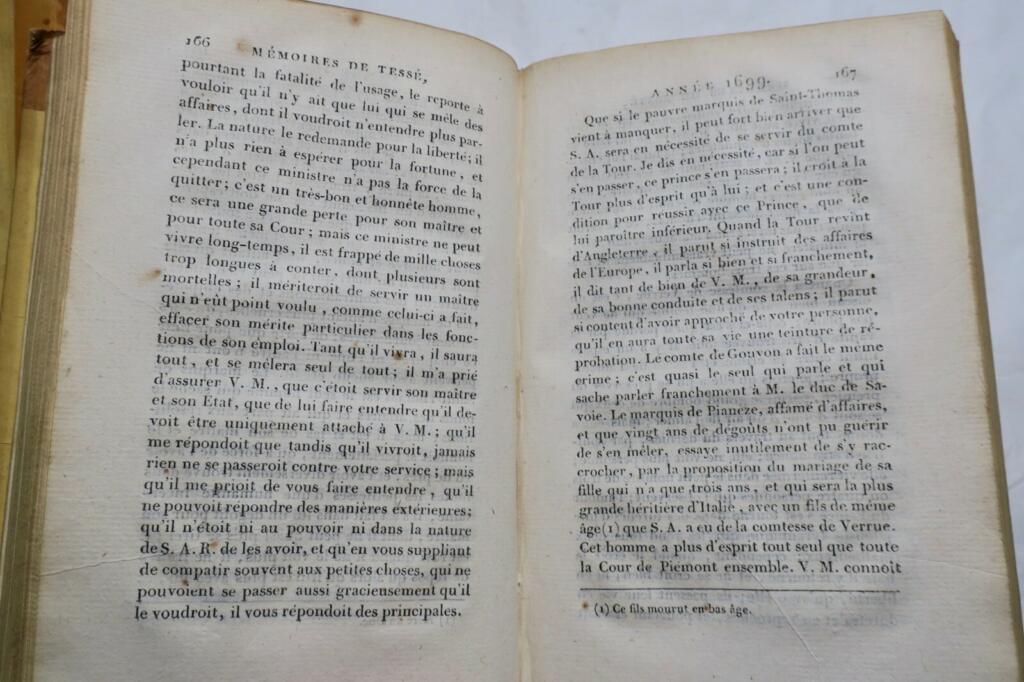 166
MÉMOIRES DE TESSÉ,
pourtant la fatalité de l'usage, le reporte à
vouloir qu'il n'y ait que lui qui se mêle des
affaires, dont il voudroit n'entendre plus par-
ler. La nature le redemande pour la liberté; il
n'a plus rien à espérer pour la fortune, et
cependant ce ministre n'a pas la force de la
quitter; c'est un très-bon et honnête homme,
ce sera une grande perte pour son maître et
pour toute sa Cour; mais ce ministre ne peut
vivre long-temps, il est frappé de mille choses
trop longues à conter, dont plusieurs sont
mortelles; il mériteroit de servir un maître
qui n'eût point voulu, comme celui-ci a fait,
effacer son mérite particulier dans les fonc-
tions de son emploi. Tant qu'il vivra, il saura
tout, et se mêlera seul de tout; il m'a prié
d'assurer V. M., que c'étoit servir son maître
et son Etat, que de lui faire entendre qu'il de-
voit être uniquement attaché à V. M.; qu'il
me répondoit que tandis qu'il vivroit, jamais
rien ne se passeroit contre votre service; mais
qu'il me prioit de vous faire entendre, qu'il
ne pouvoit répondre des manières extérieures;
qu'il n'étoit ni au pouvoir ni dans la nature
de S. A. R. de les avoir, et qu'en vous suppliant
de compatir souvent aux petites choses, qui ne
pouvoient se passer aussi gracieusement qu'il
le voudroit, il vous répondoit des principales.
ANNÉE 1699.
167
Que si le pauvre marquis de Saint-Thomas
vient à manquer, il peut fort bien arriver que
S. A. sera en nécessité de se servir du comte
de la Tour. Je dis en nécessité, car si l'on peut
s'en passer, ce prince s'en passera; il croit à la
Tour plus d'esprit qu'à lui; et c'est une con-
dition pour réussir avec ce Prince, que de
lui paroître inférieur. Quand la Tour revint
d'Angleterre, il parut si instruit des affaires
de l'Europe, il parla si bien et si franchement,
il dit tant de bien de V. M., de sa grandeur,
de sa bonne conduite et de ses talens; il parut
si content d'avoir approché de votre personne,
qu'il en aura toute sa vie une teinture de ré-
probation. Le comte de Gouvon a fait le même
crime; c'est quasi le seul qui parle et qui
sache parler franchement à M. le duc de Sa-
voie. Le marquis de Pianeze, affamé d'affaires,
et que vingt ans de dégoûts n'ont pu guérir
de s'en mêler, essaye inutilement de s'y rac-
crocher, par la proposition du mariage de sa
fille qui n'a que trois ans, et qui sera la plus
grande héritière d'Italie, avec un fils de même
âge (1) que S. A. a eu de la comtesse de Verrue.
Cet homme a plus d'esprit tout seul que toute
la Cour de Piémont ensemble. V. M. connoît
(1) Ce fils mourut en bas âge.